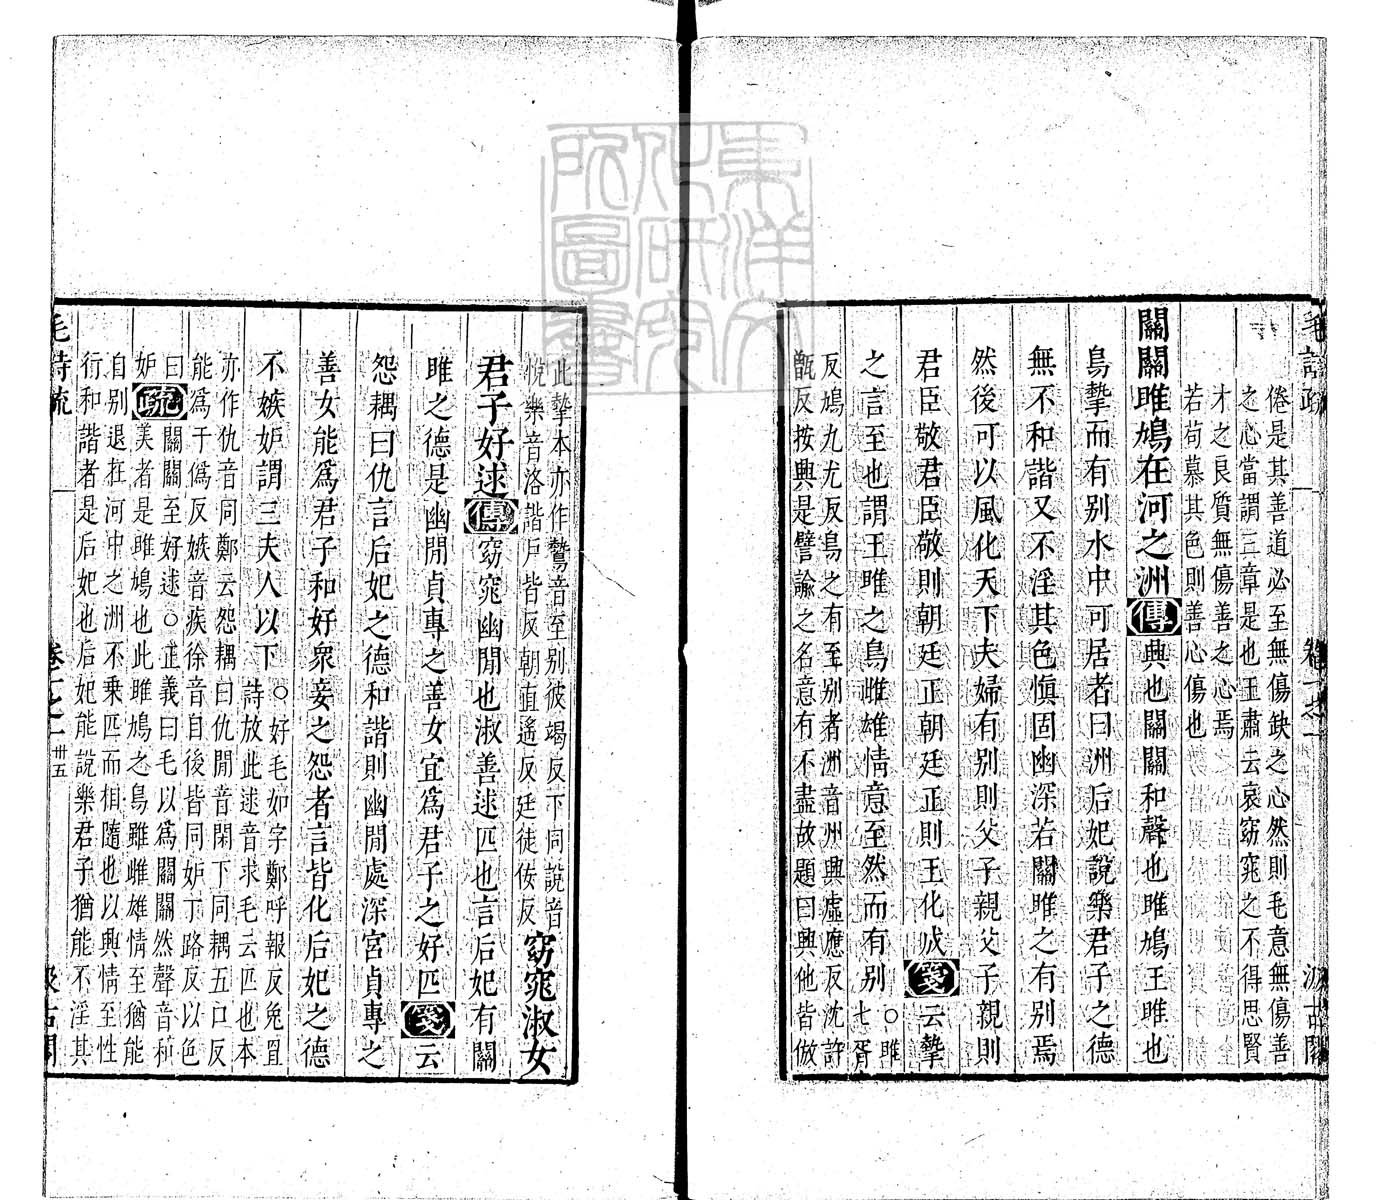 毛詩疏
卷一之一
汲古閣
倦是其善道必至無傷缺之心然則毛意無傷善
之心當謂三章是也王肅云哀窈窕之不得思賢
才之良質無傷善之心焉
若苟慕其色則善心傷也
關關雎鳩在河之洲傳興也關關和聲也雎鳩王雎也
鳥摯而有别水中可居者曰洲后妃說樂君子之德
無不和諧又不淫其色慎固幽深若關雎之有别焉
然後可以風化天下夫婦有别則父子親父子親則
君臣敬君臣敬則朝廷正朝廷正則王化成箋云摯
之言至也謂王雎之鳥雌雄情意至然而有别
○雎
七胥
反鳩九尤反鳥之有至别者洲音州興虛應反沈許
甑反按興是譬諭之名意有不盡故題曰興他皆倣
此摯本亦作鷙音至别彼竭反下同說音
悅樂音洛諧戶皆反朝直遙反廷徒佞反
窈窕淑女
君子好逑傳窈窕幽閒也淑善逑匹也言后妃有關
雎之德是幽閒貞專之善女宜爲君子之好匹箋云
怨耦曰仇言后妃之德和諧則幽閒處深宮貞專之
善女能爲君子和好衆妾之怨者言皆化后妃之德
不嫉妬謂三夫人以下
○好毛如字鄭呼報反兔罝
詩放此逑音求毛云匹也本
亦作仇音同鄭云怨耦曰仇閒音閑下同耦五口反
能爲于僞反嫉音疾徐音自後皆同妬丁路反以色
曰妬
疏
關關至好逑○正義曰毛以爲關關然聲音和
美者是雎鳩也此雎鳩之鳥雖雌雄情至猶能
自别退在河中之洲不乗匹而相隨也以興情至性
行和諧者是后妃也后妃能說樂君子猶能不淫其
毛詩疏
卷一之一
卅五
汲古閣
東洋文化研究所圖書